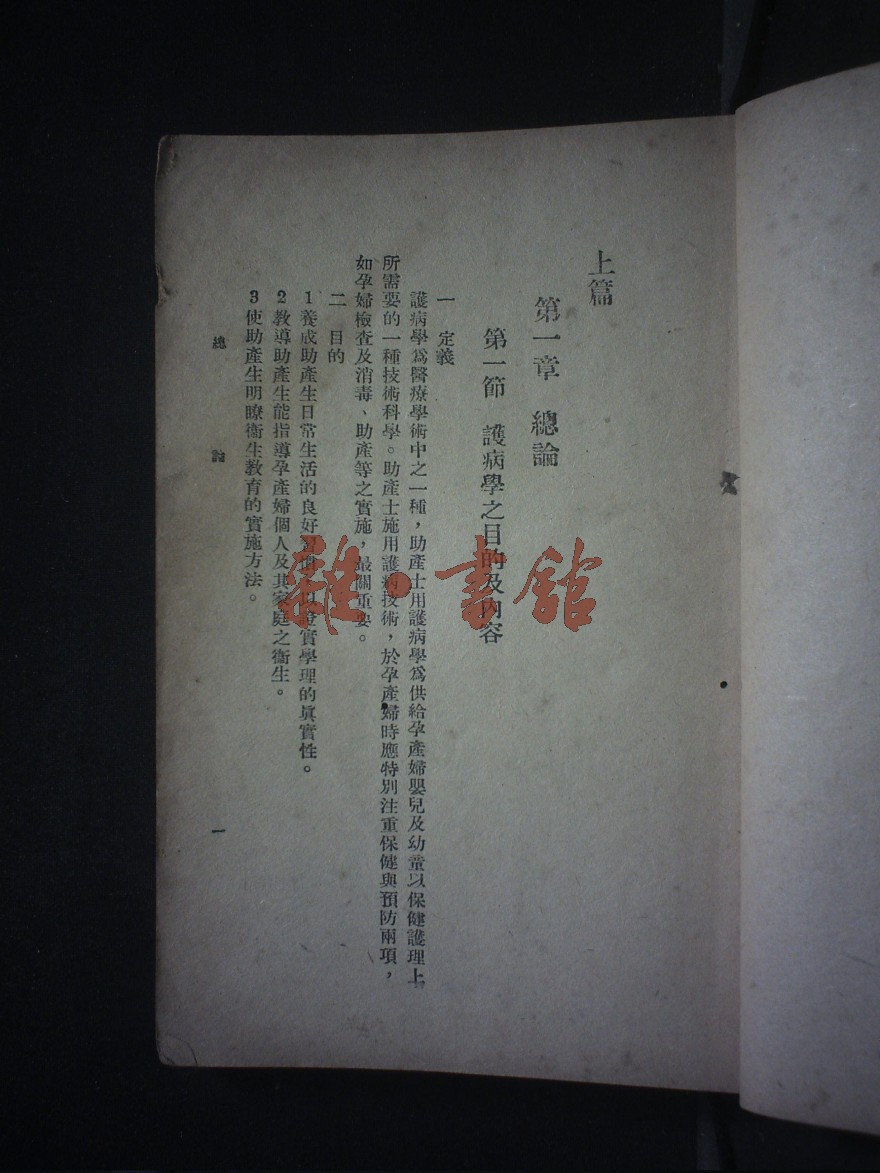 上篇
第一章 總論
第一節 護病學之目的及內容
一 定義
護病學爲醫療學術中之一種，助產士用護病學爲供給孕產婦嬰兒及幼童以保健護理上
所需要的一種技術科學。助產士施用護病技術，於孕產婦時應特別注重保健與預防兩項，
如孕婦檢查及消毒、助產等之實施，最關重要。
二 目的
1養成助產生日常生活的良好習慣，以證實學理的眞實性。
2教導助產生能指導孕產婦個人及其家庭之衞生。
3使助產生明瞭衞生教育的實施方法。
總 論 一
雜·書館